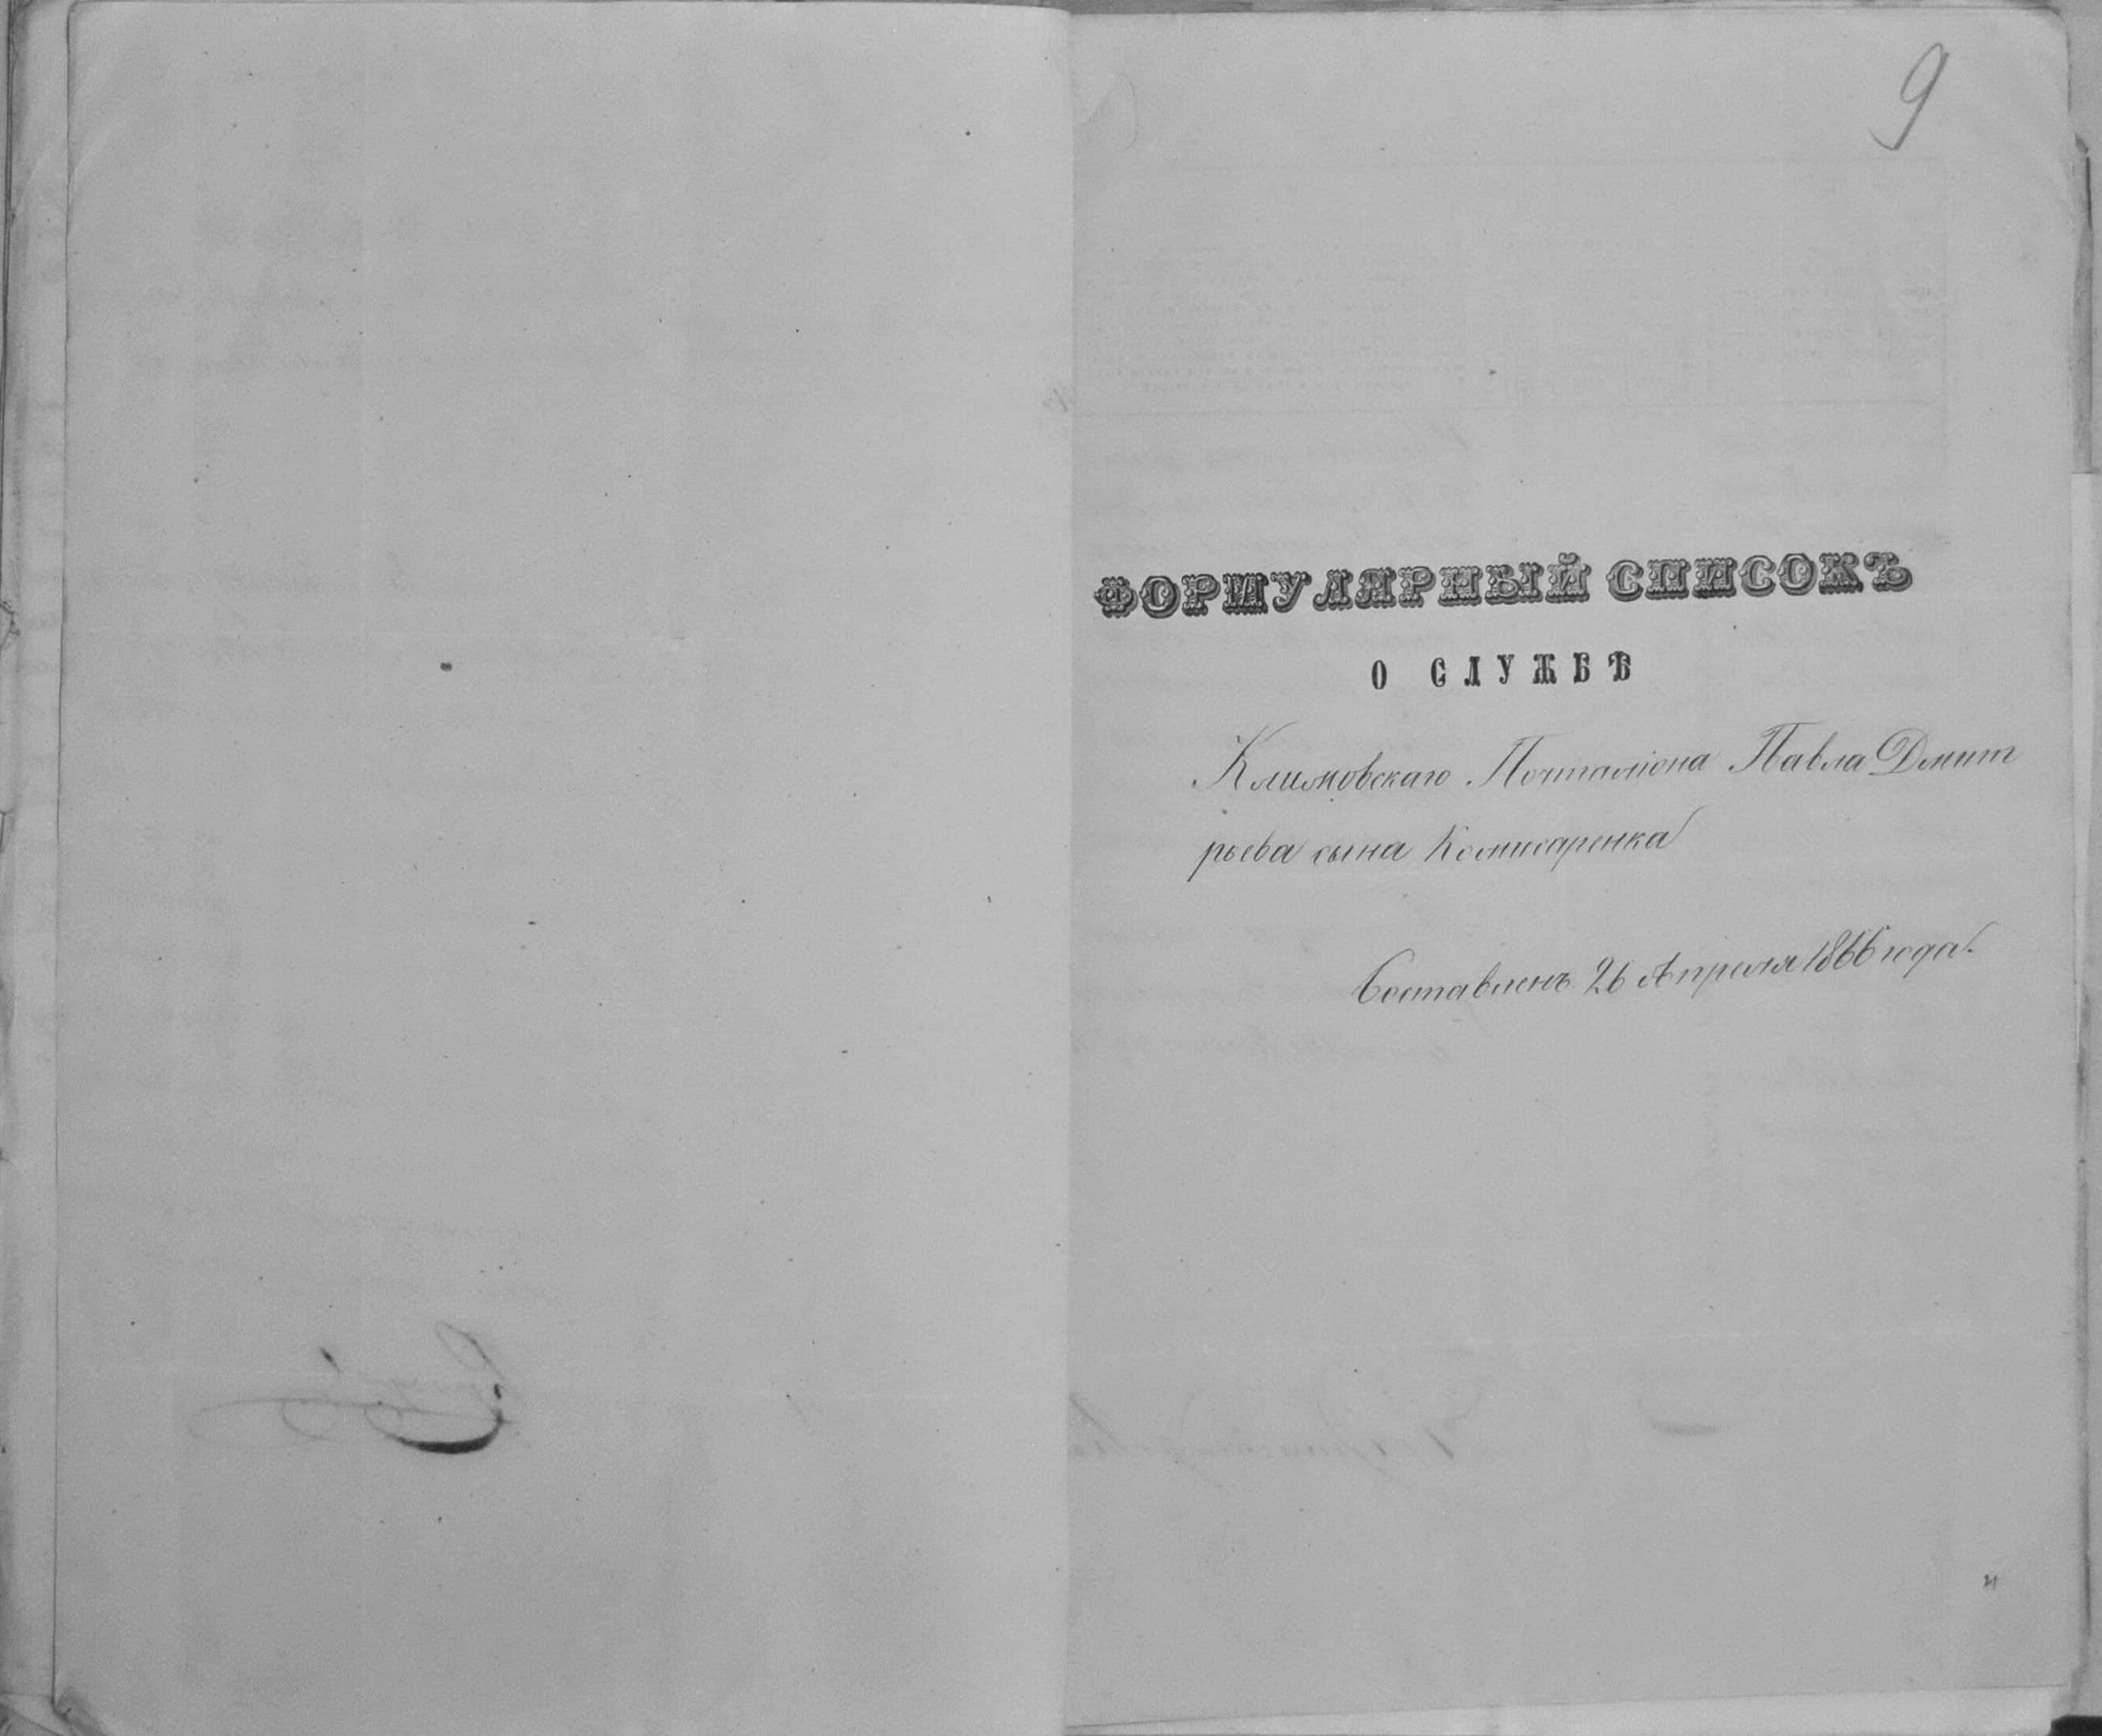 9
ФОРМУЛЯРНЫЙ СПИСОКЪ
О СЛУЖБѢ
Климовскаго Почталiона Павла Дмит
рьева сына Комисаренка
Составленъ 26 Апреля 1866 года.